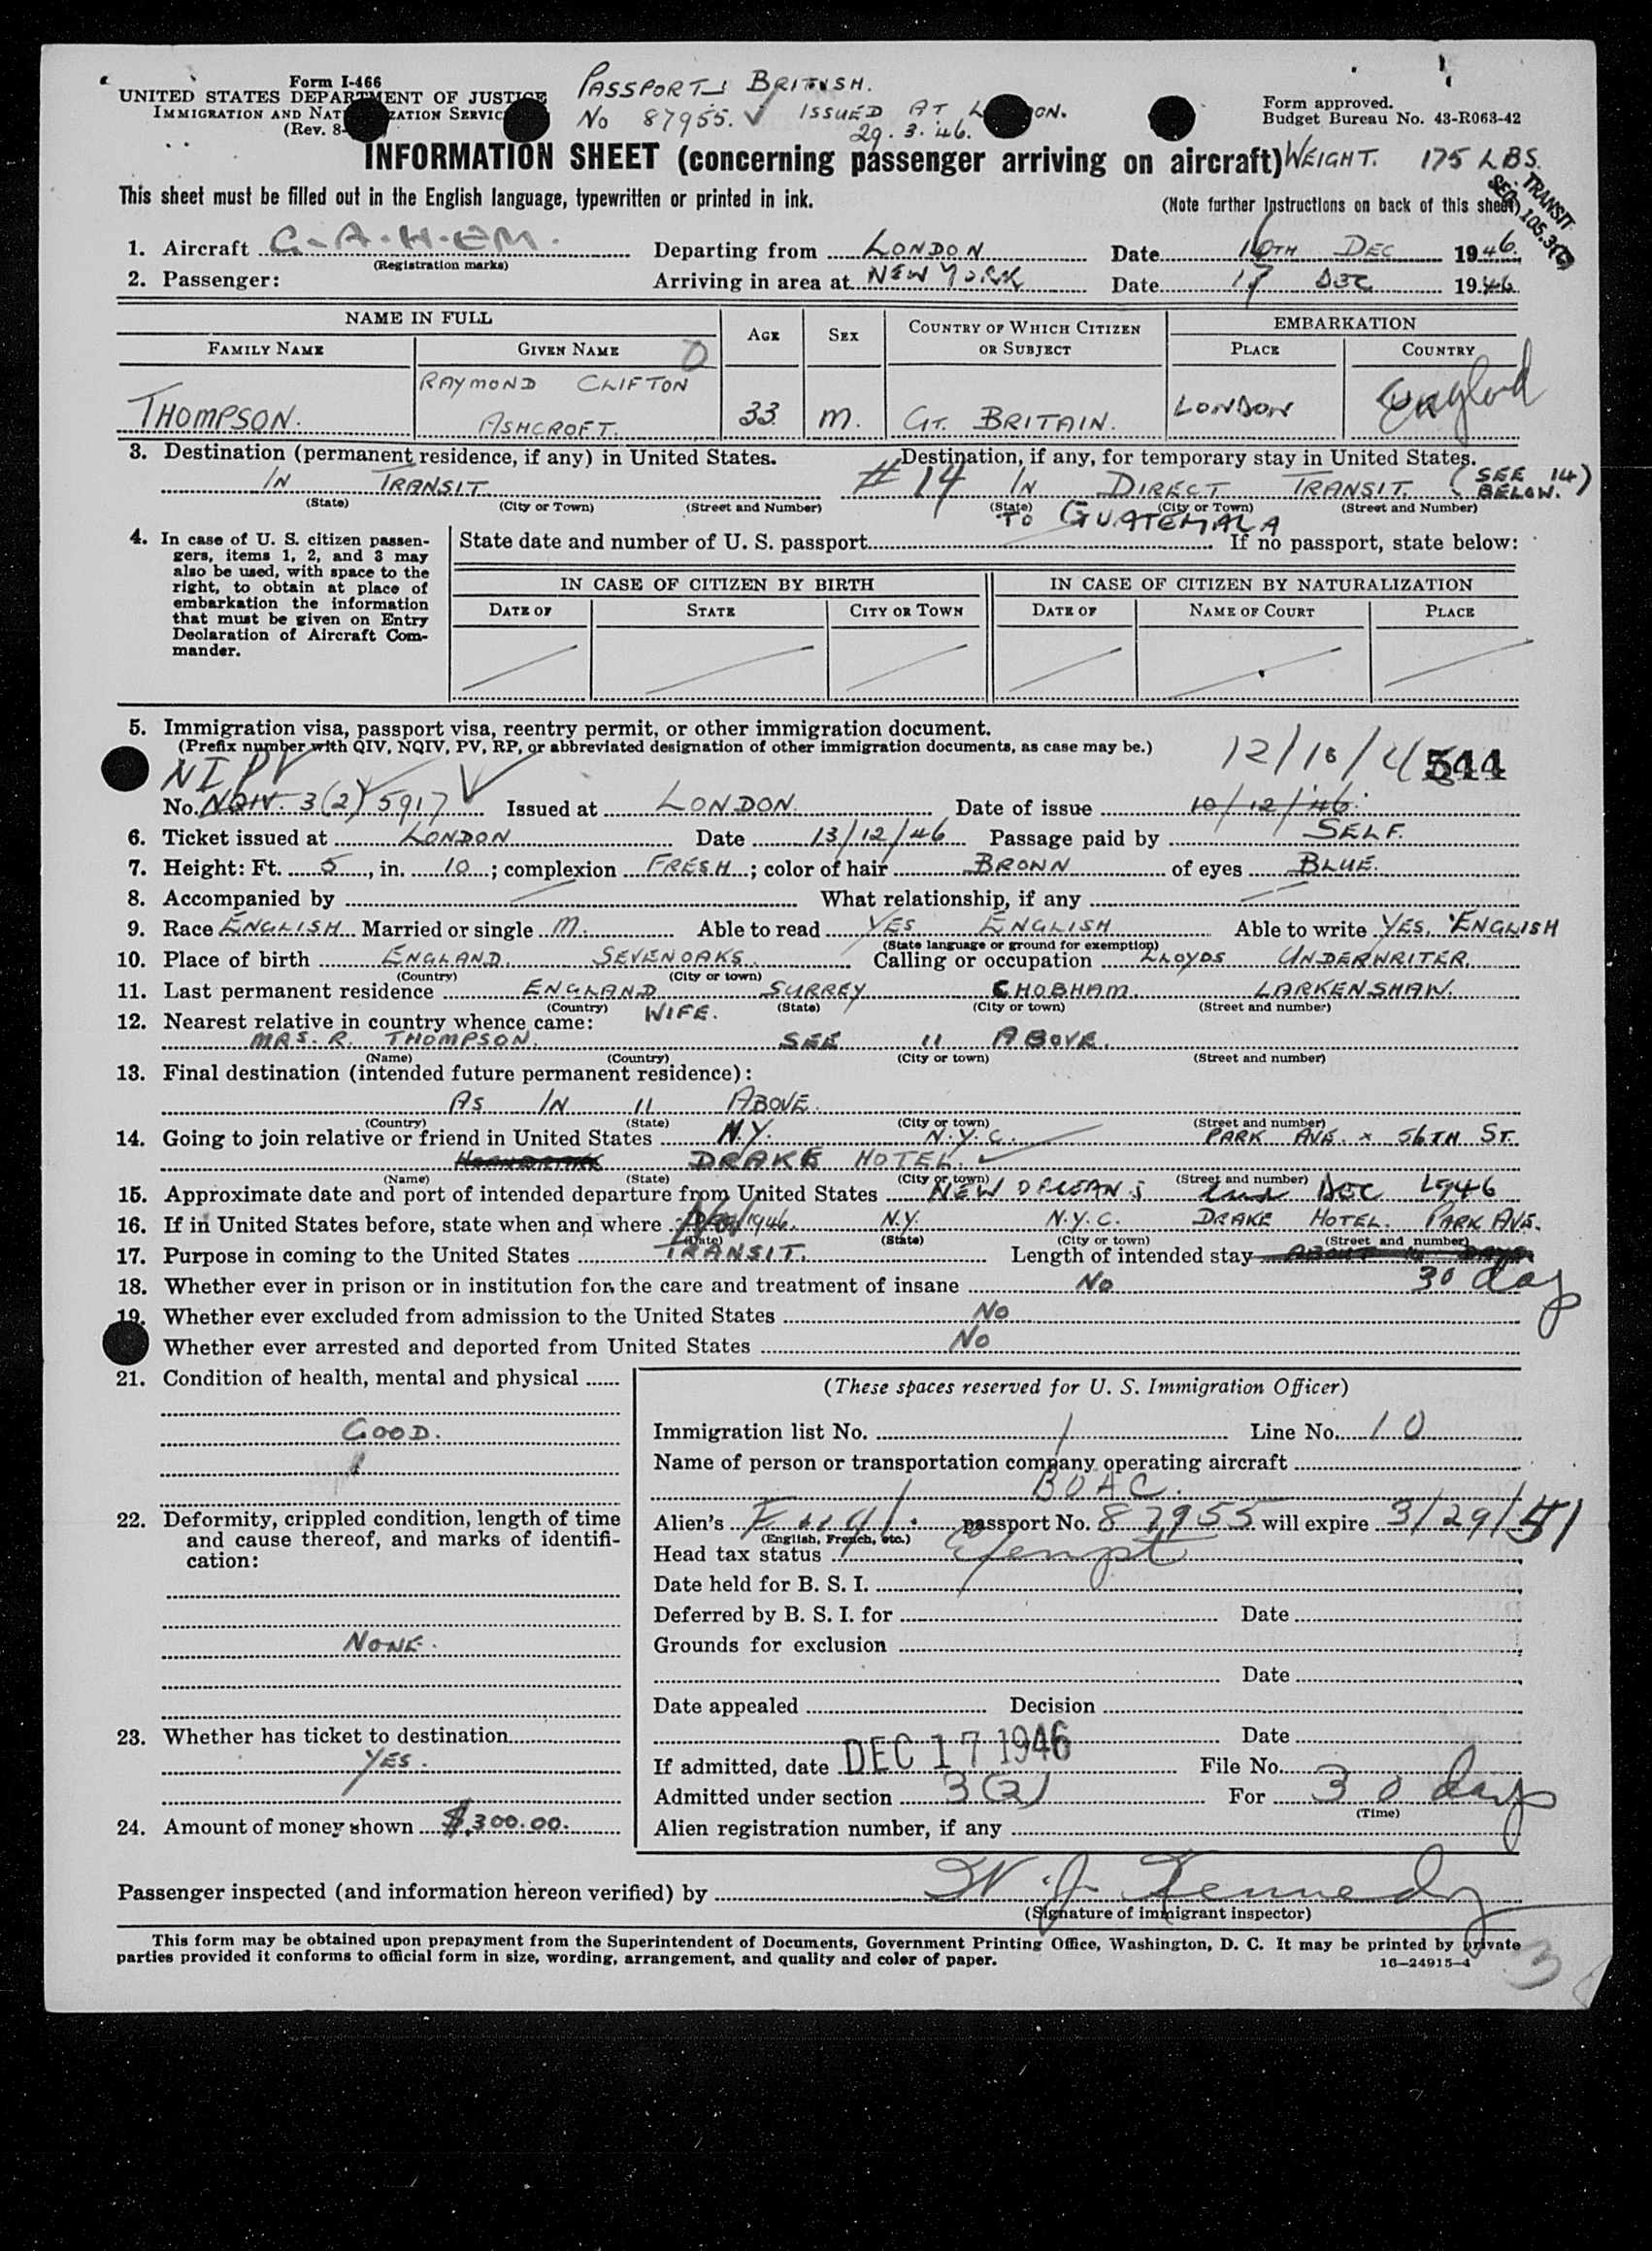 Form I-466
UNITED STATES DEPARTMENT OF JUSTICE
IMMIGRATION AND NAT ZATION SERVIC
(Rev. 8-
PASSPORT: BRITISH.
No 87955. ✓ ISSUED AT L ON.
29.3.46.
Form approved.
Budget Bureau No. 43-R063-42
INFORMATION SHEET (concerning passenger arriving on aircraft) WEIGHT. 175 LBS.
TRANSIT
This sheet must be filled out in the English language, typewritten or printed in ink. (Note further instructions on back of this sheet)
1. Aircraft G-A.H.EM. Departing from LONDON Date 16TH DEC 1946.
(Registration marks)
2. Passenger: Arriving in area at NEW YORK Date 17 DEC 1946
NAME IN FULL AGE SEX COUNTRY OF WHICH CITIZEN OR SUBJECT EMBARKATION
FAMILY NAME GIVEN NAME PLACE COUNTRY
RAYMOND CLIFTON
THOMPSON. ASHCROFT. 33 M. GT. BRITAIN. LONDON England
3. Destination (permanent residence, if any) in United States. Destination, if any, for temporary stay in United States.
IN TRANSIT. #14 IN DIRECT TRANSIT. (SEE 14) BELOW.
(State) (City or Town) (Street and Number) (State) (City or Town) (Street and Number)
TO GUATEMALA
4. In case of U. S. citizen passengers, items 1, 2, and 3 may also be used, with space to the right, to obtain at place of embarkation the information that must be given on Entry Declaration of Aircraft Commander.
State date and number of U. S. passport If no passport, state below:
IN CASE OF CITIZEN BY BIRTH IN CASE OF CITIZEN BY NATURALIZATION
DATE OF STATE CITY OR TOWN DATE OF NAME OF COURT PLACE
5. Immigration visa, passport visa, reentry permit, or other immigration document.
(Prefix number with QIV, NQIV, PV, RP, or abbreviated designation of other immigration documents, as case may be.)
NI PV 544
No. NQIV. 3(2) 5917 Issued at LONDON. Date of issue 10/12/46.
6. Ticket issued at LONDON Date 13/12/46 Passage paid by SELF.
7. Height: Ft. 5, in. 10; complexion FRESH; color of hair BROWN of eyes BLUE.
8. Accompanied by What relationship, if any
9. Race ENGLISH Married or single M. Able to read YES ENGLISH Able to write YES. ENGLISH
(State language or ground for exemption)
10. Place of birth ENGLAND. SEVENOAKS. Calling or occupation LLOYDS UNDERWRITER.
(Country) (City or town)
11. Last permanent residence ENGLAND SURREY CHOBHAM. LARKENSHAW.
(Country) (State) (City or town) (Street and number)
12. Nearest relative in country whence came: WIFE.
MRS. R. THOMPSON. SEE 11 ABOVE.
(Name) (Country) (City or town) (Street and number)
13. Final destination (intended future permanent residence):
AS IN 11 ABOVE.
(Country) (State) (City or town) (Street and number)
14. Going to join relative or friend in United States N.Y. N.Y.C. PARK AVE. x 56TH ST.
DRAKE HOTEL. ✓
(Name) (State) (City or town) (Street and number)
15. Approximate date and port of intended departure from United States NEW ORLEANS end DEC 1946
16. If in United States before, state when and where Nov/1946. N.Y. N.Y.C. DRAKE HOTEL. PARK AVE.
(Date) (State) (City or town) (Street and number)
17. Purpose in coming to the United States TRANSIT. Length of intended stay
30 days
18. Whether ever in prison or in institution for the care and treatment of insane No
19. Whether ever excluded from admission to the United States No
Whether ever arrested and deported from United States No
21. Condition of health, mental and physical
GOOD.
22. Deformity, crippled condition, length of time and cause thereof, and marks of identification:
NONE.
23. Whether has ticket to destination
YES.
24. Amount of money shown $300.00.
(These spaces reserved for U. S. Immigration Officer)
Immigration list No. 1 Line No. 10
Name of person or transportation company operating aircraft
BOAC.
Alien's Engl. passport No. 87955 will expire 3/29/51
(English, French, etc.)
Head tax status Exempt
Date held for B. S. I.
Deferred by B. S. I. for Date
Grounds for exclusion
Date
Date appealed Decision
Date
If admitted, date DEC 17 1946 File No.
Admitted under section 3(2) For 30 days
(Time)
Alien registration number, if any
Passenger inspected (and information hereon verified) by W. J. Kennedy
(Signature of immigrant inspector)
This form may be obtained upon prepayment from the Superintendent of Documents, Government Printing Office, Washington, D. C. It may be printed by private
parties provided it conforms to official form in size, wording, arrangement, and quality and color of paper. 16—24915-4
3